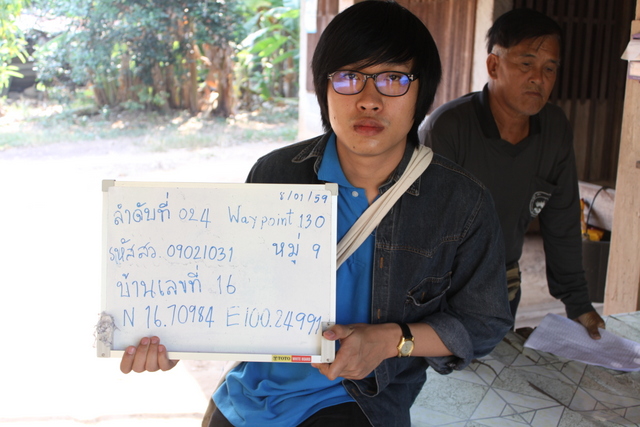 8/01/59
ลำดับที่ 024 Waypoint 130
รหัสสว. 09021031 หมู่ 9
บ้านเลขที่ 16
N 16.70984 E100.24991
TOYO